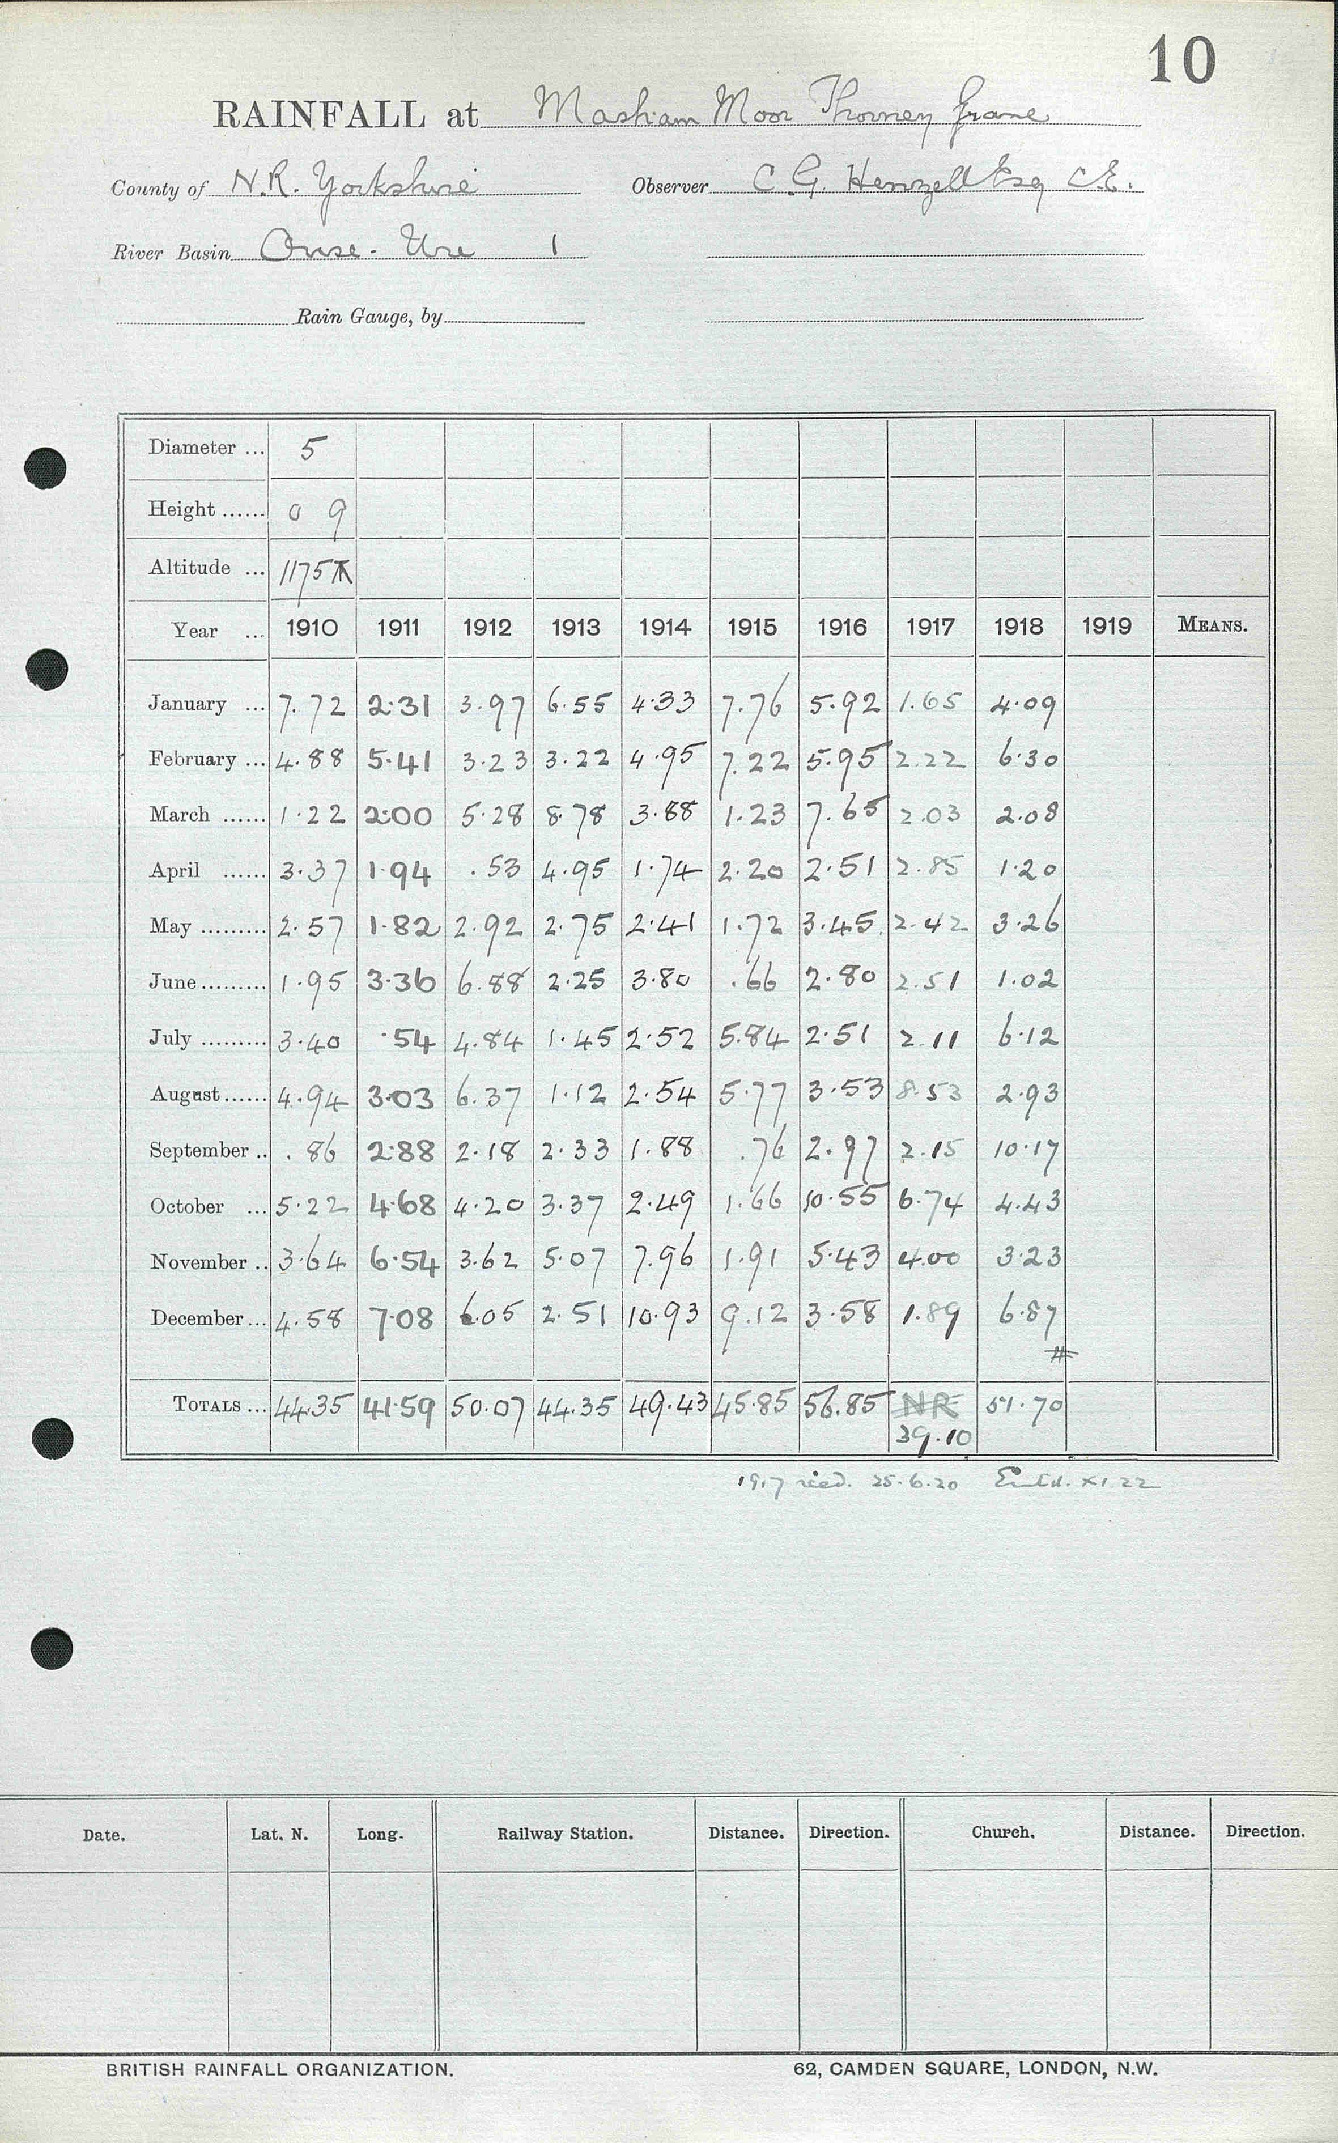 10
RAINFALL at Masham Moor Thorney Grane
County of N.R. Yorkshire Observer C. G. Henzell Esq C.E.
River Basin Ouse. Ure 1
Rain Gauge, by
Diameter ... 5
Height ...... 0 9
Altitude ... 1175
Year ... 1910 1911 1912 1913 1914 1915 1916 1917 1918 1919 MEANS.
January ... 7.72 2.31 3.97 6.55 4.33 7.76 5.92 1.65 4.09
February ... 4.88 5.41 3.23 3.22 4.95 7.22 5.95 2.22 6.30
March ...... 1.22 2.00 5.28 8.78 3.88 1.23 7.65 2.03 2.08
April ...... 3.37 1.94 .53 4.95 1.74 2.20 2.51 2.85 1.20
May ......... 2.57 1.82 2.92 2.75 2.41 1.72 3.45 2.42 3.26
June ......... 1.95 3.36 6.88 2.25 3.80 .66 2.80 2.51 1.02
July ......... 3.40 .54 4.84 1.45 2.52 5.84 2.51 2.11 6.12
August ...... 4.94 3.03 6.37 1.12 2.54 5.77 3.53 8.53 2.93
September .. .86 2.88 2.18 2.33 1.88 .76 2.97 2.15 10.17
October ... 5.22 4.68 4.20 3.37 2.49 1.66 10.55 6.74 4.43
November .. 3.64 6.54 3.62 5.07 7.96 1.91 5.43 4.00 3.23
December ... 4.58 7.08 6.05 2.51 10.93 9.12 3.58 1.89 6.87
TOTALS ... 44.35 41.59 50.07 44.35 49.43 45.85 56.85 NR 51.70
39.10
1917 recd. 25.6.20 Entd. XI.22
Date. Lat. N. Long. Railway Station. Distance. Direction. Church. Distance. Direction.
BRITISH RAINFALL ORGANIZATION. 62, CAMDEN SQUARE, LONDON, N.W.